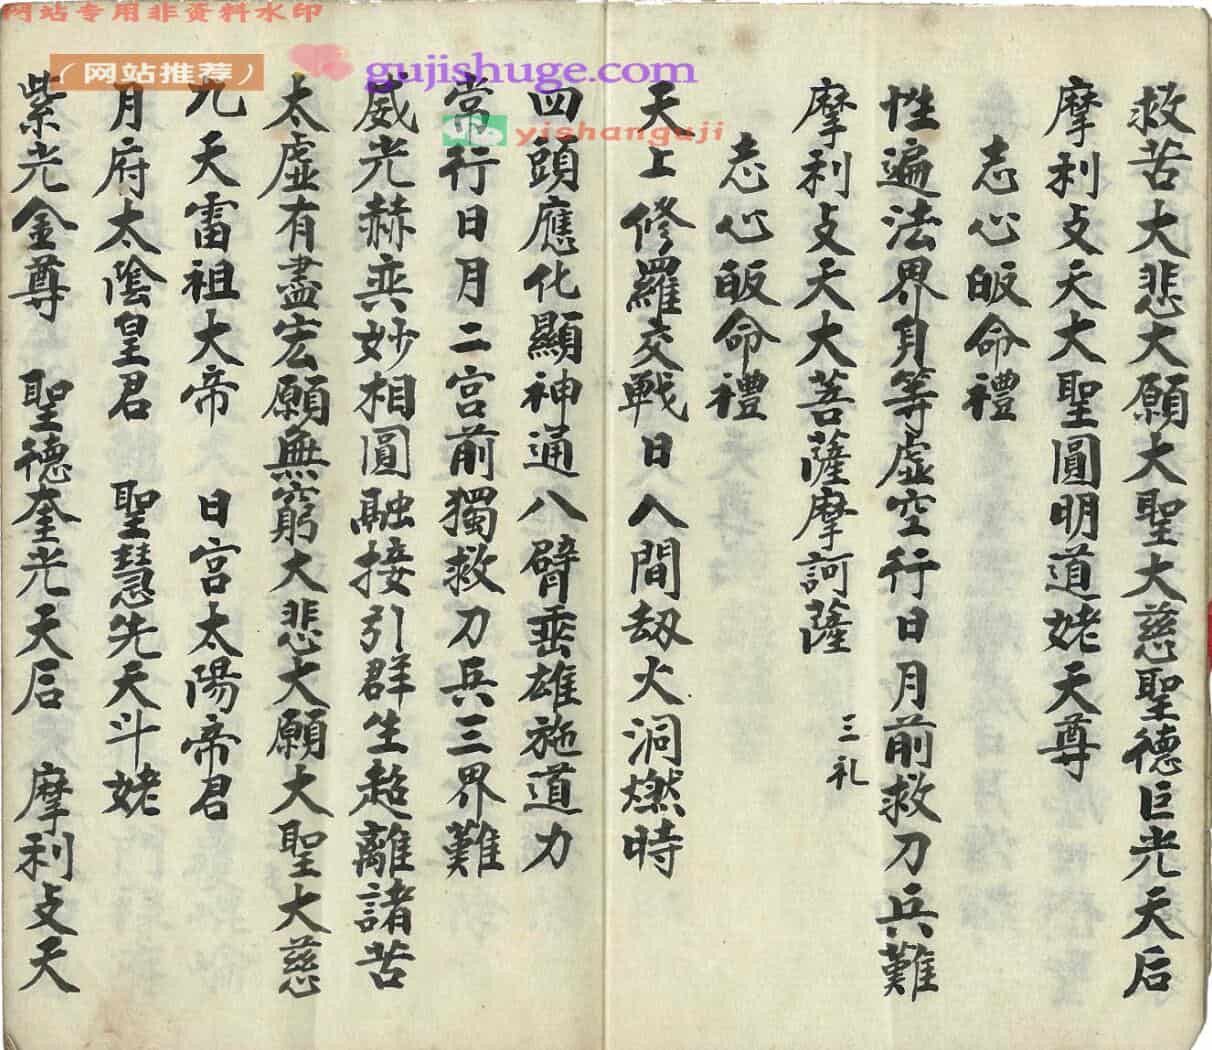 网站专用非资料水印
（网站推荐）
gujishuge.com
yishanguji
救苦大悲大願大聖大慈聖德巨光天后
摩利攴天大聖圓明道姥天尊
志心皈命禮
性遍法界身等虛空行日月前救刀兵難
摩利攴天大菩薩摩訶薩 三礼
志心皈命禮
天上修羅交戰日人間劫火洞燃時
四頭應化顯神通八臂垂雄施道力
常行日月二宮前獨救刀兵三界難
威光赫奕妙相圓融接引群生超離諸苦
太虛有盡宏願無窮大悲大願大聖大慈
九天雷祖大帝 日宮太陽帝君
月府太陰皇君 聖慧先天斗姥
紫光金尊 聖德奎光天后 摩利攴天